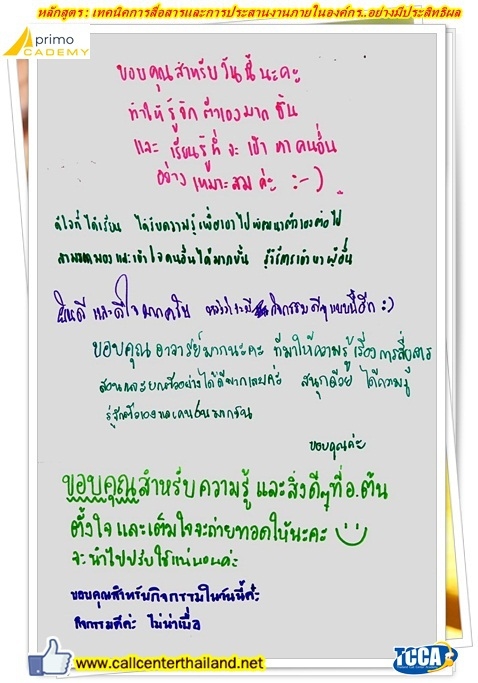 หลักสูตร : เทคนิคการสื่อสารและการประสานงานภายในองค์กร..อย่างมีประสิทธิผล
Aprimo
ACADEMY
ขอบคุณสำหรับวันนี้นะคะ
ทำให้รู้จักตัวเองมากขึ้น
และ เรียนรู้ที่จะเข้าหาคนอื่น
อย่างเหมาะสมค่ะ :-)
ดีใจที่ได้เรียน ได้รับความรู้เพื่อเอาไปพัฒนาตัวเองต่อไป
และเข้าใจคนอื่นได้มากขึ้น รู้วิธีการเข้าหาผู้อื่น
ยินดี และดีใจมากครับ กิจกรรมดีๆแบบนี้อีก :)
ขอบคุณ อาจารย์มากนะคะ ที่มาให้ความรู้เรื่องการสื่อสาร
สอนและยกตัวอย่างได้ดีมากเลยค่ะ สนุกด้วย ได้ความรู้
รู้จักตัวเองและคนอื่นมากขึ้น
ขอบคุณค่ะ
ขอบคุณสำหรับความรู้ และสิ่งดีๆที่ อ.ต้น
ตั้งใจ และเต็มใจจะถ่ายทอดให้นะคะ
จะนำไปปรับใช้แน่นอนค่ะ
ขอบคุณสำหรับกิจกรรมในวันนี้ค่ะ
กิจกรรมดีค่ะ ไม่น่าเบื่อ
www.callcenterthailand.net
TCCA